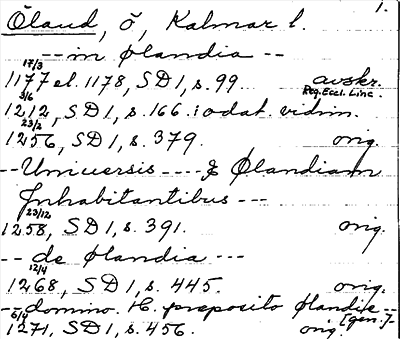 1.
Öland, ö, Kalmar l.
-- in Ølandia --
17/3
1177 el. 1178, SD1, s. 99. avskr.
Reg. Eccl. Linc.
3/6
1212, SD1, s. 166. i odat. vidim.
23/2
1256, SD1, s. 379. orig.
-- Uniuersis ---- & Ølandiam
Jnhabitantibus ---
23/12
1258, SD1, s. 391. orig.
-- de Ølandia ---
12/4
1268, SD1, s. 445. orig.
-- domino. H. preposito Ølandie --
6/4 [gen.]-
1271, SD1, s. 456. orig.